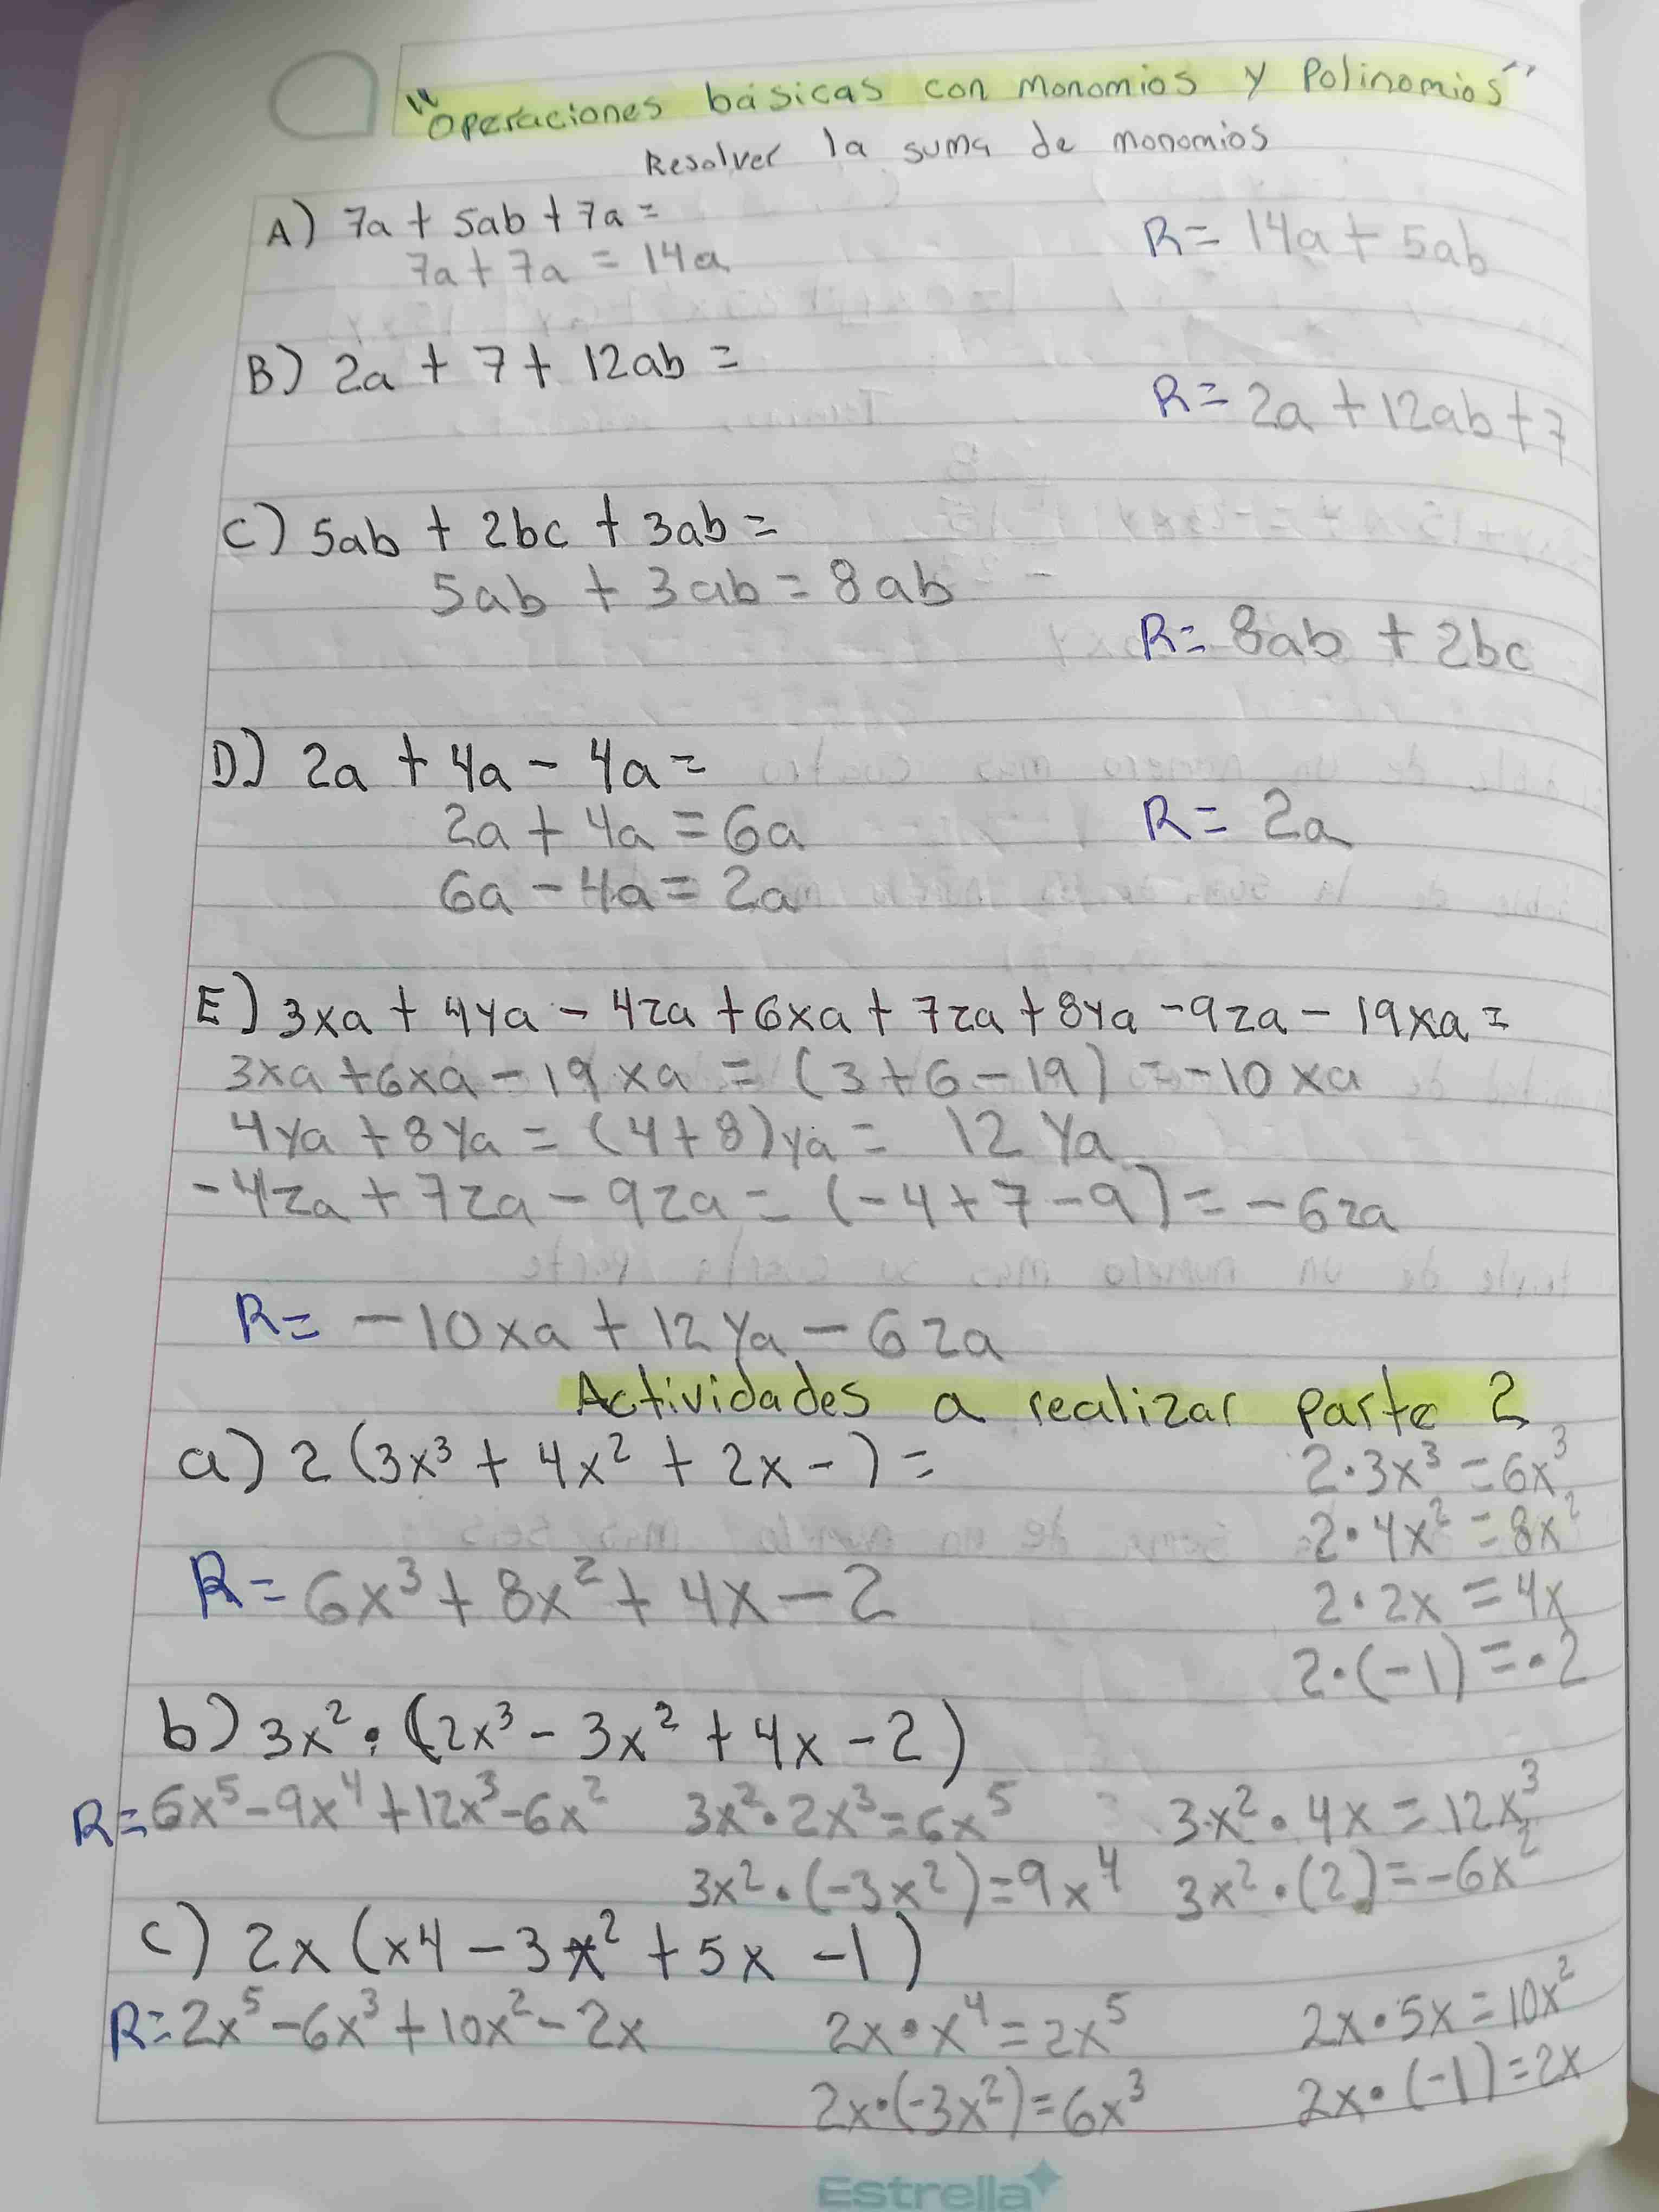 "Operaciones básicas con monomios y Polinomios"
Resolver la suma de monomios
A) 7a + 5ab + 7a =
7a + 7a = 14a
R= 14a + 5ab
B) 2a + 7 + 12ab =
R= 2a + 12ab + 7
C) 5ab + 2bc + 3ab =
5ab + 3ab = 8ab
R= 8ab + 2bc
D) 2a + 4a - 4a =
2a + 4a = 6a
R= 2a
6a - 4a = 2a
E) 3xa + 4ya - 4za + 6xa + 7za + 8ya - 9za - 19xa =
3xa + 6xa - 19xa = (3 + 6 - 19) = -10xa
4ya + 8ya = (4 + 8)ya = 12ya
-4za + 7za - 9za = (-4 + 7 - 9) = -6za
R= -10xa + 12ya - 6za
Actividades a realizar parte 2
a) 2(3x³ + 4x² + 2x - ) =
2·3x³ = 6x³
2·4x² = 8x²
R= 6x³ + 8x² + 4x - 2
2·2x = 4x
2·(-1) = ·2
b) 3x² · (2x³ - 3x² + 4x - 2)
R= 6x⁵ - 9x⁴ + 12x³ - 6x²
3x²·2x³ = 6x⁵
3x²·4x = 12x³
3x²·(-3x²) = 9x⁴
3x²·(2) = -6x²
c) 2x(x4 - 3x² + 5x - 1)
R= 2x⁵ - 6x³ + 10x² - 2x
2x·x⁴ = 2x⁵
2x·5x = 10x²
2x·(-3x²) = 6x³
2x·(-1) = 2x
Estrella